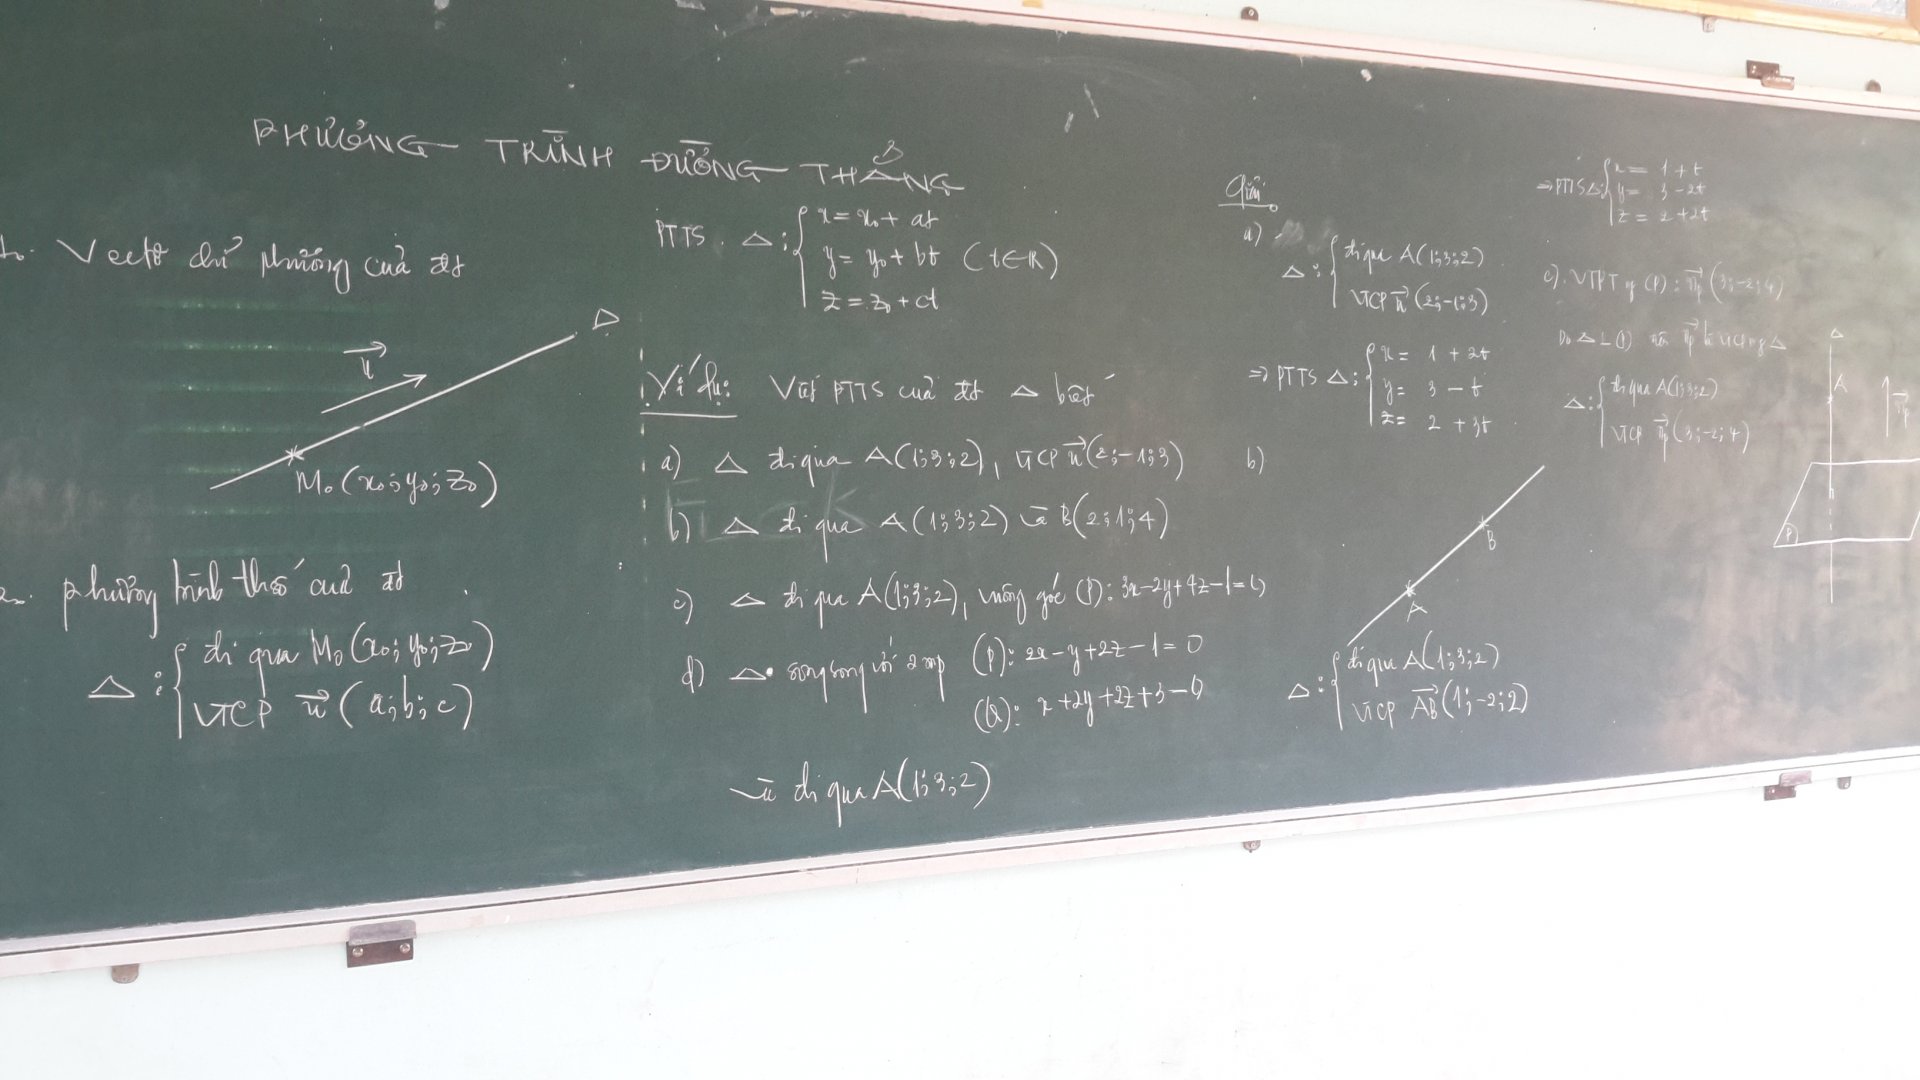 PHƯƠNG TRÌNH ĐƯỜNG THẲNG
1. Vectơ chỉ phương của đt
u
Δ
M₀(x₀;y₀;z₀)
2. phương trình tham số của đt
Δ: { đi qua M₀(x₀;y₀;z₀)
VTCP u(a;b;c)
PTTS. Δ: { x = x₀ + at
y = y₀ + bt (t∈R)
z = z₀ + ct
Ví dụ: Viết PTTS của đt Δ biết
a) Δ đi qua A(1;3;2), VTCP u(2;-1;3)
b) Δ đi qua A(1;3;2) và B(2;1;4)
c) Δ đi qua A(1;3;2), vuông góc (P): 3x-2y+4z-1=0
d) Δ song song với 2 mp (P): 2x-y+2z-1=0
(Q): x+2y+2z+3=0
và đi qua A(1;3;2)
Giải:
a)
Δ: { đi qua A(1;3;2)
VTCP u(2;-1;3)
⇒ PTTS Δ: { x = 1 + 2t
y = 3 - t
z = 2 + 3t
b)
B
A
Δ: { đi qua A(1;3;2)
VTCP AB(1;-2;2)
⇒ PTTS Δ: { x = 1 + t
y = 3 - 2t
z = 2 + 2t
c). VTPT (P): n_p(3;-2;4)
Do Δ ⊥ (P) nên n_p là VTCP Δ
Δ: { đi qua A(1;3;2)
VTCP n_p(3;-2;4)
Δ
A
n_p
P)